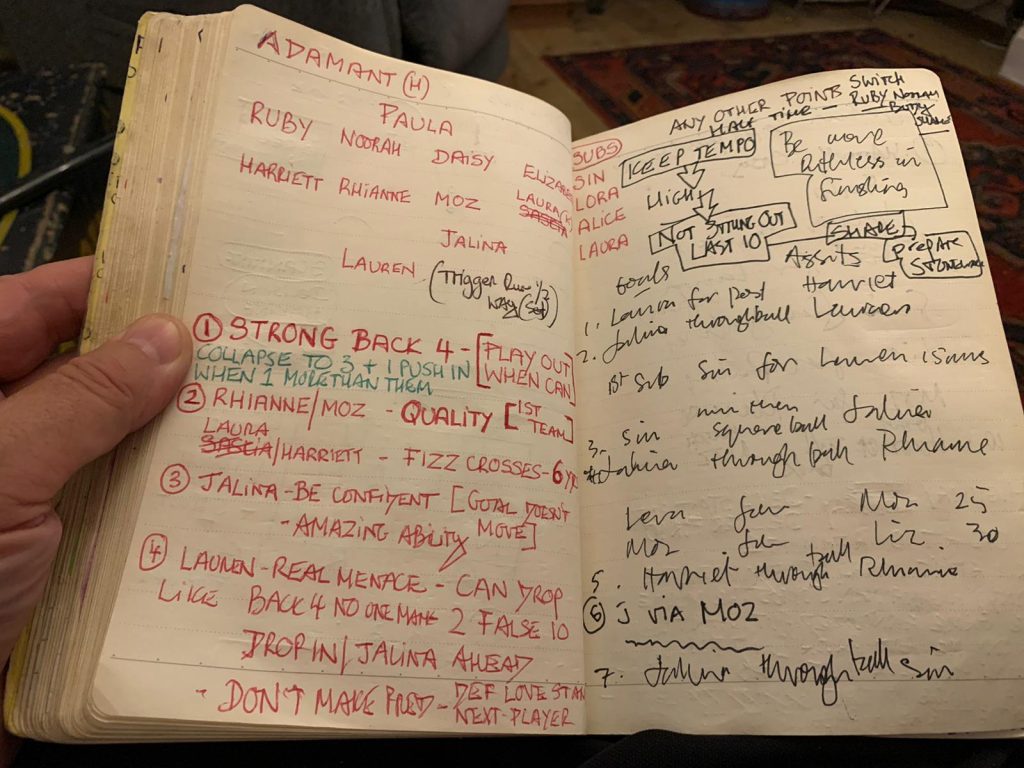 ADAMANT (H)
PAULA
RUBY NOORAH DAISY
HARRIETT RHIANNE MOZ LAURA
JALINA
LAUREN (Trigger
① STRONG BACK 4 - [PLAY OUT WHEN CAN]
COLLAPSE TO 3 + 1 PUSH IN
WHEN 1 MORE THAN THEM
② RHIANNE/MOZ - QUALITY [1ST TEAM]
LAURA
SASCIA/HARRIETT - FIZZ CROSSES - 6
③ JALINA - BE CONFIDENT [GOAL DOESN'T MOVE]
- AMAZING ABILITY
④ LAUREN - REAL MENACE - CAN DROP
LIKE BACK 4 NO ONE MARK 2 FALSE 10
DROP IN/JALINA AHEAD
- DON'T MAKE PRED - DEF LOVE
NEXT - PLAYER
ANY OTHER POINTS SWITCH
HALF TIME - RUBY NORAH
SUBS
SIN
LORA
ALICE
LAURA
KEEP TEMPO
HIGH
NOT SITTING OUT
LAST 10
Be more
Ruthless in
finishing
SHAPE
Prepare
Goals Assists
1. Laura far post Harriet
2. Jalina throughball Lauren
1st Sub Sin for Lauren 15 mins
3. Sin square ball Jalina
Jalina through ball Rhianne
Lora for Moz 25
Moz for Liz 30
5. Harriet through ball Rhianne
⑥ J VIA MOZ
7. Jalina through ball Sin